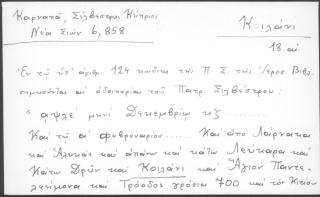 Καρνατά, Σίλβεστρος, Κύπριος
Νέα Σιών 6, 858
Κοιλάνι
18. αἰ
Ἐν τῷ ὑπ' ἀριθμ. 124 κώδικι τῆς Π. Σ τῆς Ἱεροσ. Βιβλ.
σημειοῦνται αἱ ὁδοιπορίαι τοῦ Πατρ. Σιλβέστρου:
"αψλε' μηνὶ Δεκεμβρίῳ κζ ......
Καὶ τῇ αἰ φεβρουαρίου.... Καὶ ἀπὸ Λάρνακα
καὶ Ἀλυκὰς καὶ ἀπάνω καὶ κάτω Λεύκαρα καὶ
Κάτω Δρὺν καὶ Κοιλάνι καὶ Ἅγιον Παντε-
λεήμονα καὶ Τρόοδος γρόσια 700 καὶ τὸν Κιτίου